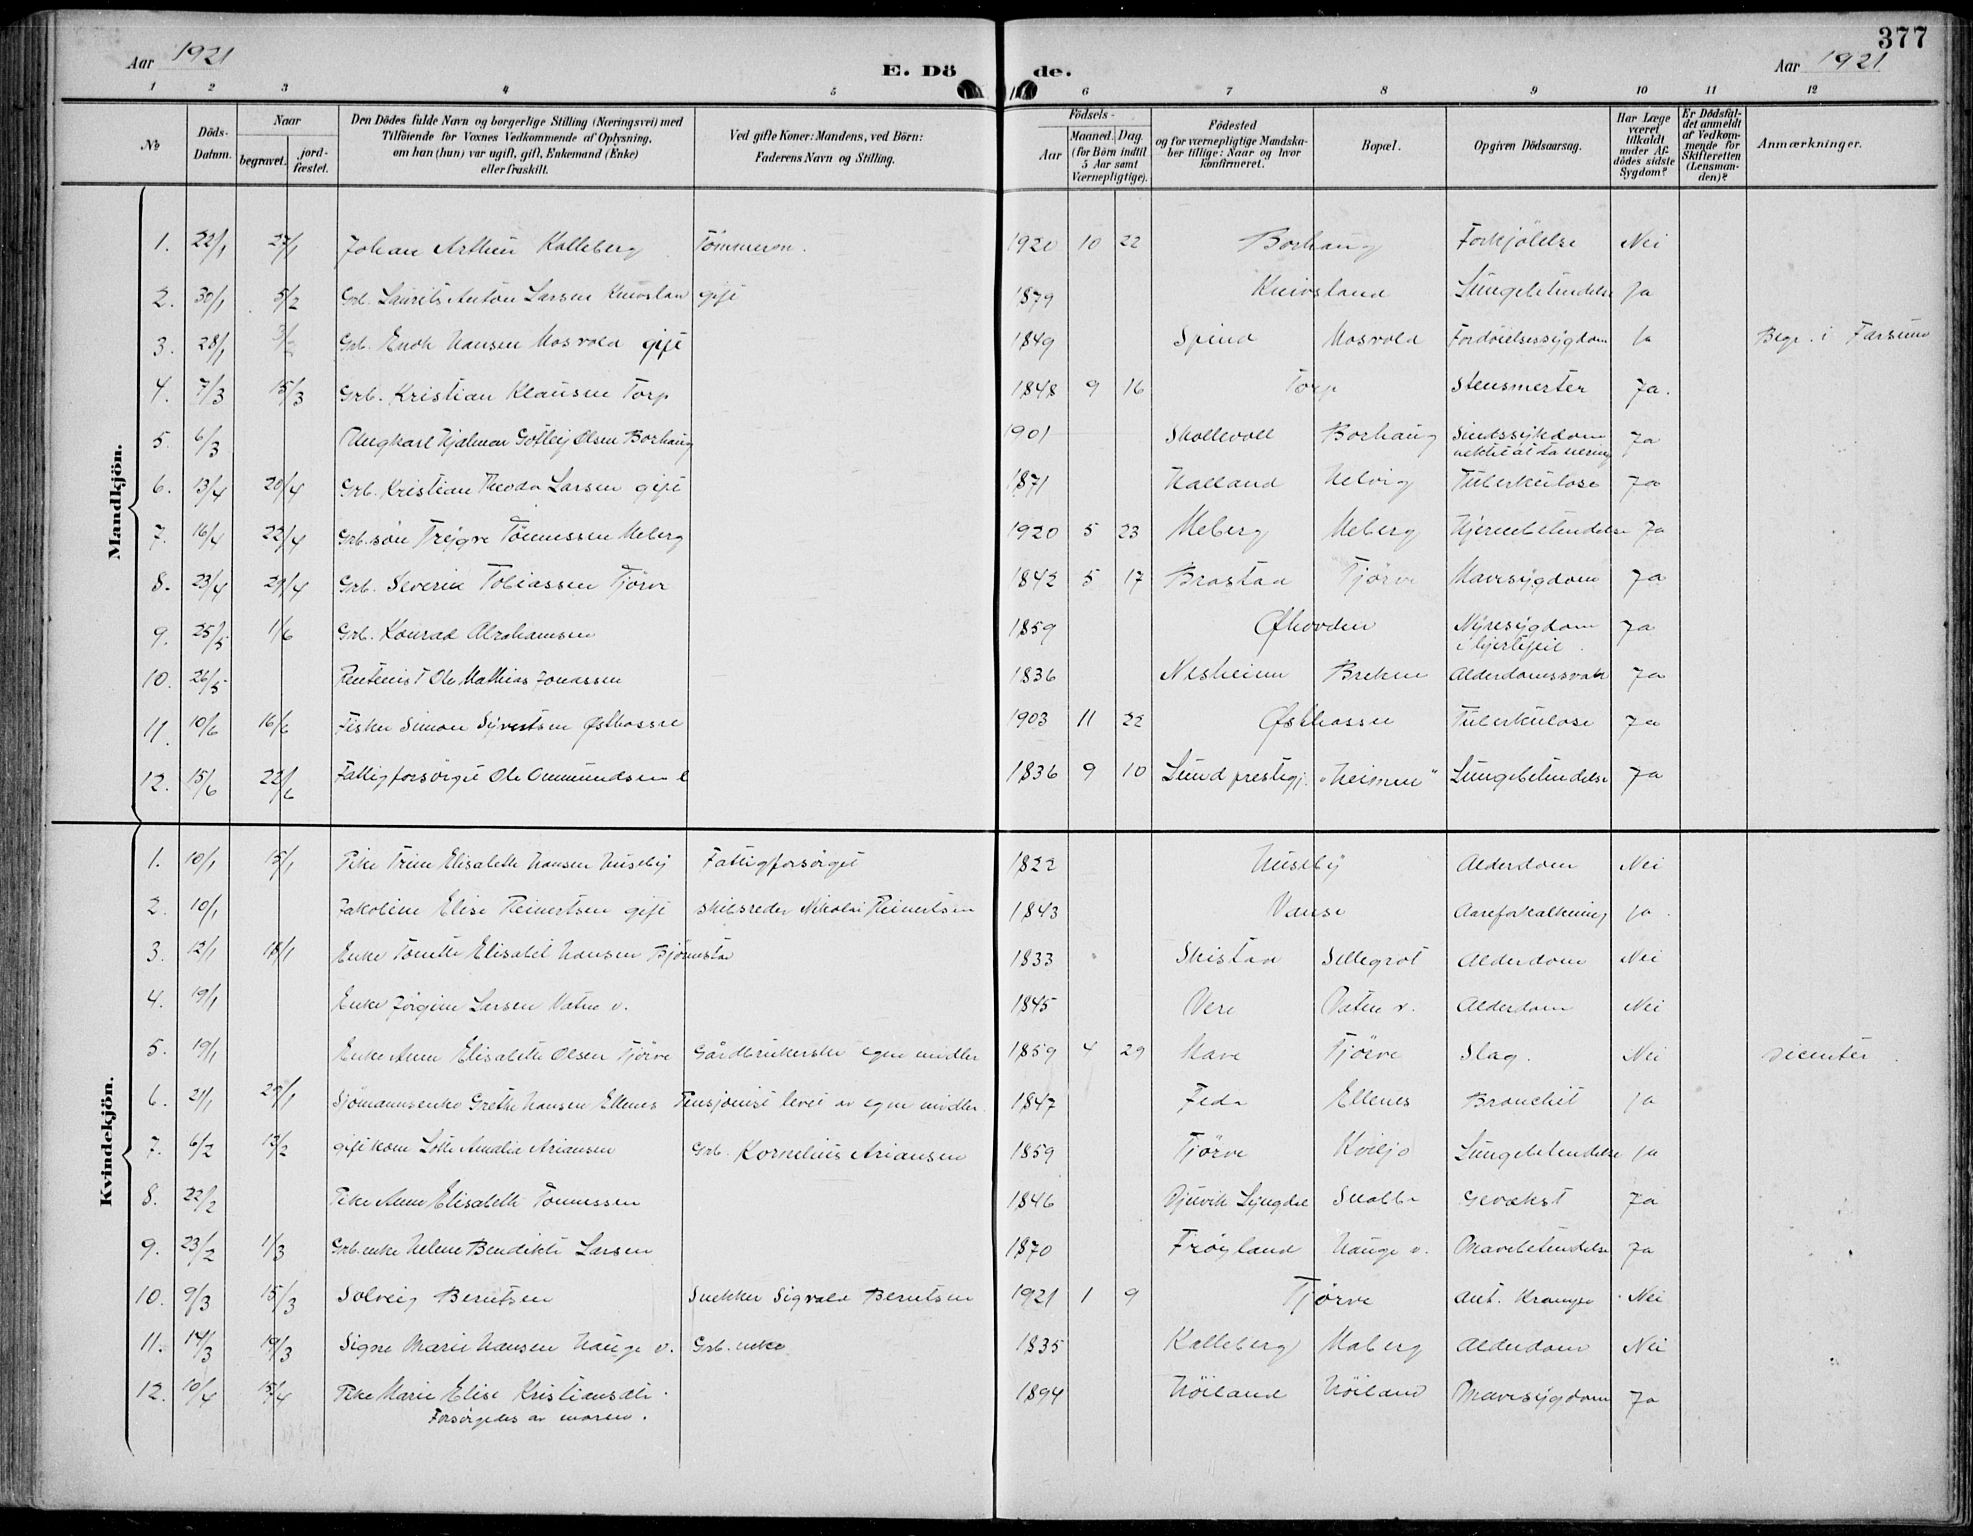 377
Aar 1921 E. Dö de. Aar 1921
1 2 3 4 5 6 7 8 9 10 11 12
№
Döds-Datum.
Naar
begravet.
jord-fæstet.
Den Dödes fulde Navn og borgerlige Stilling (Næringsvei) med
Tilföiende for Voxnes Vedkommende af Oplysning,
om han (hun) var ugift, gift, Enkemand (Enke)
eller fraskilt.
Ved gifte Koner: Mandens, ved Börn:
Faderens Navn og Stilling.
Födsels-
Aar
Maaned. Dag.
(for Börn indtil
5 Aar samt
Værnepligtige).
Födested
og for værnepligtige Mandska-
ber tillige: Naar og hvor
konfirmeret.
Bopæl.
Opgiven Dödsaarsag.
Har Læge
været
tilkaldt
under Af-
dödes sidste
Sygdom?
Er Dödsfal-
det anmeldt
af Vedkom-
mende for
Skifteretten
(Lensman-
den)?
Anmærkninger.
Mandkjön.
1. 22/1 27/1 Johan Arthur Kalleberg Tömmerm. 1920 10 22 Borhaug Forkjölelse Nei
2. 30/1 5/2 Grb. Laurits Anton Larsen Knivslan gift 1879 Knivsland Lungebetendelse Ja
3. 28/1 3/2 Grb. Enok Hansen Mosvold gift 1849 Spind Mosvold Fordöielsessygdom Ja Begr. i Farsund
4. 7/3 15/3 Grb. Kristian Klausen Torp 1848 9 16 Torp Stensmerter Ja.
5. 6/3 Ungkarl Hjalmar Gotleif Olsen Borhaug 1901 Skollevoll Borhaug Sindssykdom Ja
6. 13/4 20/4 Grb. Kristian Theodor Larsen gift 1871 Halland Helvig Tuberkulose Ja
7. 16/4 22/4 Grb.sön Trygve Tönnessen Meberg 1920 5 23 Meberg Meberg Hjernebetendelse Ja
8. 23/4 29/4 Grb. Severin Tobiassen Tjörve 1842 5 17 Brastad Tjörve Mavesygdom Ja
9. 25/5 1/6 Grb. Konrad Abrahamsen 1859 Nyresygdom Ja
i hjertefeil.
10. 26/5 Rentenist Ole Mathias Jonassen 1836 Nesheim Brekne Alderdomssvak Ja
11. 10/6 16/6 Fisker Simon Syvertsen Østhassel 1903 11 22 Østhassel Tuberkulose Ja
12. 15/6 22/6 Fattigforsörget Ole Ommundsen 1836 9 10 Lund prestegj. "Heimen" Lungebetendelse Ja
Kvindekjön.
1. 10/1 15/1 Pike Trine Elisabeth Hansen Huseby Fattigforsörget 1822 Huseby Alderdom Nei
2. 10/1 Jakobine Elise Reinertsen gift skibsreder Nikolai Reinertsen 1843 Vanse Aareforkalkning Ja.
3. 12/1 18/1 Enke Tonette Elisabet Hansen Björnstad 1833 Skistad Sellegrot Alderdom Nei
4. 19/1 Enke Jörgine Larsen Vatne v. 1845 Vere Vatne v. Alderdom Nei
5. 19/1 Enke Anne Elisabeth Olsen Tjörve Gårdbrukerske egne midler 1859 4 29 Have Tjörve Slag. Nei
6. 21/1 Sjömannsenke Grethe Hansen Ellenes Pensjonist levet av egne midler. 1847 Feda Ellenes Bronchit Ja
7. 6/2 12/2 gift kone Lotte Amalie Ariansen Grb. Kornelius Ariansen 1859 Tjörve Kviljo Lungebetendelse Ja
8. 22/2 Pike Anne Elisabeth Tönnessen 1846 Djuvik Lyngdal Snolbe Gevækst Ja
9. 23/2 1/3 Grb.enke Helene Bendikte Larsen 1870 Fröyland Hauge v. Mavebetendelse Ja
10. 9/3 15/3 Solveig Berntsen Snekker Sigvald Berntsen 1921 1 9 Tjörve Ant. Krampe Nei
11. 14/3 19/3 Signe Marie Hansen Hauge v. Grb. enke 1835 Kalleberg Maberg Alderdom Nei
12. 10/4 15/4 Pike Marie Elise Kristiansdtr. 1894 Höiland Höiland Mavesygdom Ja
Forsörgedes av moren.